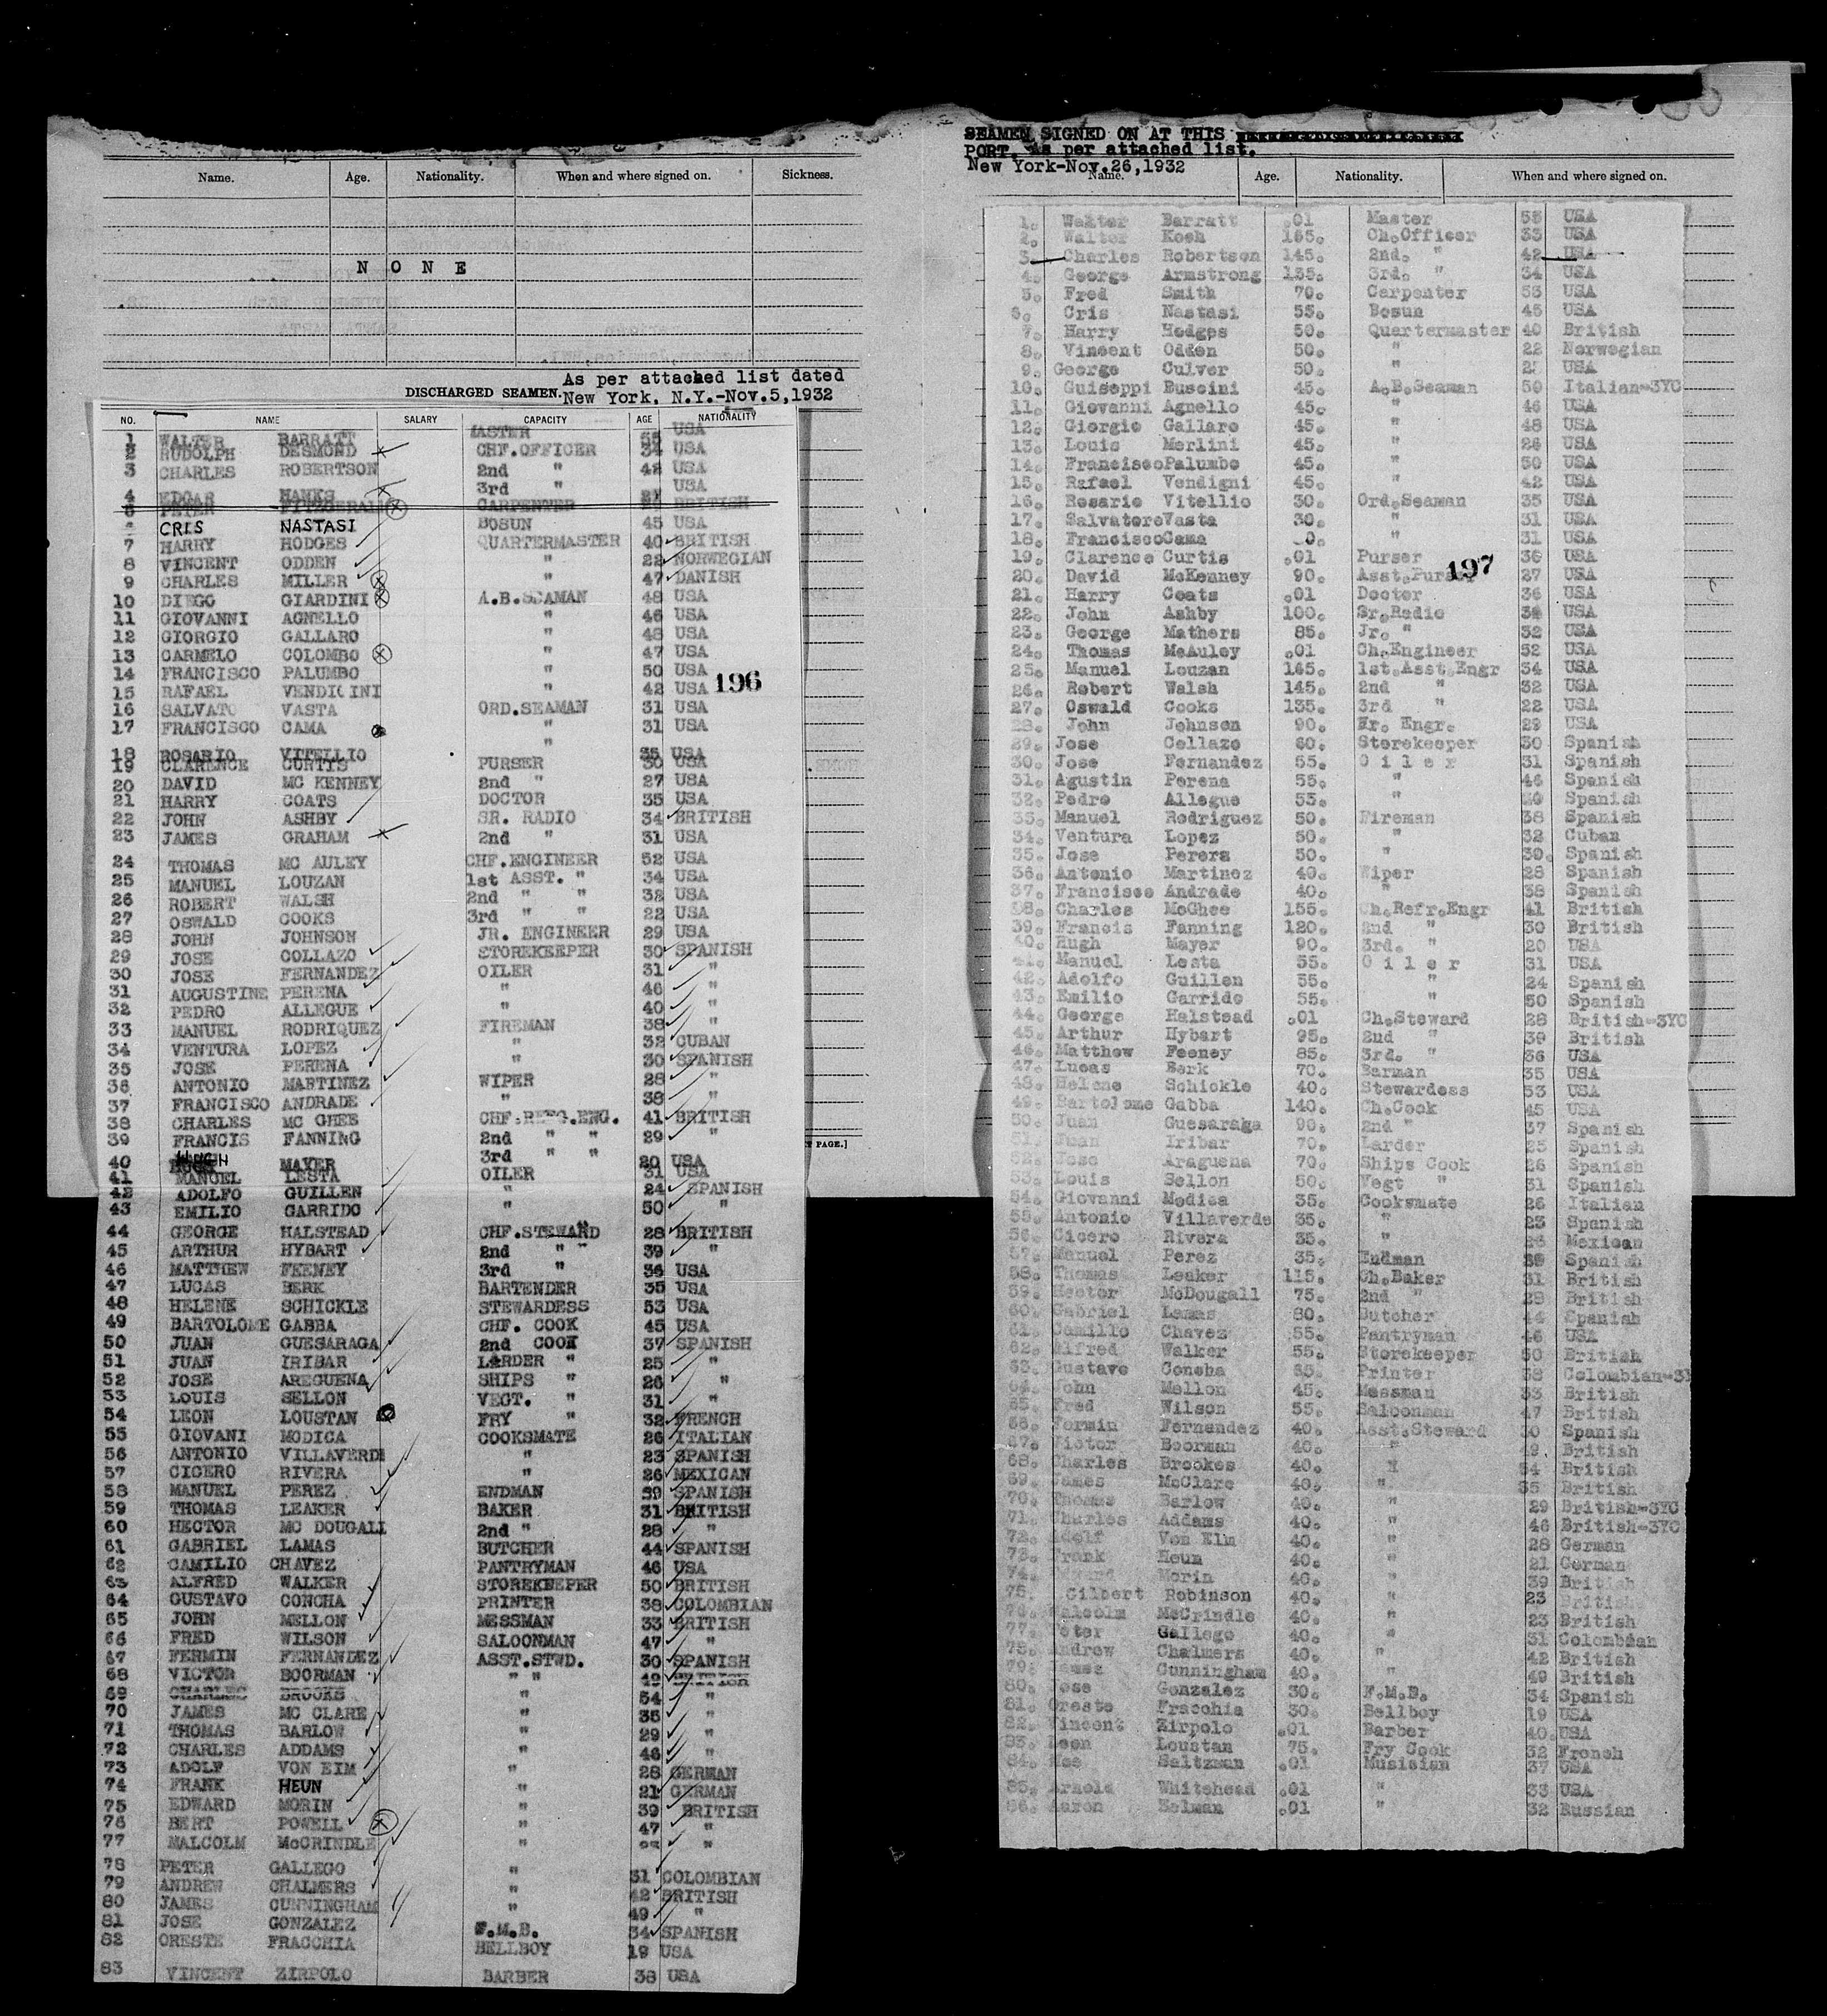 Name. Age. Nationality. When and where signed on. Sickness.
N O N E
DISCHARGED SEAMEN. As per attached list dated
New York, N.Y.-Nov.5,1932
NO. NAME SALARY CAPACITY AGE NATIONALITY
1 WALTER BARRATT MASTER 55 USA
2 RUDOLPH DESMOND CHF.OFFICER 34 USA
3 CHARLES ROBERTSON 2nd " 42 USA
4 EDGAR HANKS 3rd " USA
5 PETER FITZGERALD CARPENTER BRITISH
CRIS NASTASI BOSUN 45 USA
7 HARRY HODGES QUARTERMASTER 40 BRITISH
8 VINCENT ODDEN " 22 NORWEGIAN
9 CHARLES MILLER " 47 DANISH
10 DIEGO GIARDINI A.B.SEAMAN 48 USA
11 GIOVANNI AGNELLO " 46 USA
12 GIORGIO GALLARO " 48 USA
13 CARMELO COLOMBO " 47 USA
14 FRANCISCO PALUMBO " 50 USA
196
15 RAFAEL VENDIGINI " 42 USA
16 SALVATO VASTA ORD.SEAMAN 31 USA
17 FRANCISCO CAMA " 31 USA
18 ROSARIO VITELLIO " 35 USA
19 CLARENCE CURTIS PURSER 30 USA
20 DAVID MC KENNEY 2nd " 27 USA
21 HARRY COATS DOCTOR 35 USA
22 JOHN ASHBY SR. RADIO 34 BRITISH
23 JAMES GRAHAM 2nd " 31 USA
24 THOMAS MC AULEY CHF.ENGINEER 52 USA
25 MANUEL LOUZAN 1st ASST. " 34 USA
26 ROBERT WALSH 2nd " " 32 USA
27 OSWALD COOKS 3rd " " 22 USA
28 JOHN JOHNSON JR. ENGINEER 29 USA
29 JOSE COLLAZO STOREKEEPER 30 SPANISH
30 JOSE FERNANDEZ OILER 31 "
31 AUGUSTINE PERENA " 46 "
32 PEDRO ALLEGUE " 40 "
33 MANUEL RODRIQUEZ FIREMAN 38 "
34 VENTURA LOPEZ " 32 CUBAN
35 JOSE PERENA " 30 SPANISH
36 ANTONIO MARTINEZ WIPER 28 "
37 FRANCISCO ANDRADE " 38 "
38 CHARLES MC GHEE CHF.REFG.ENG. 41 BRITISH
39 FRANCIS FANNING 2nd " " 29 "
40 HUGH MAYER 3rd " " 20 USA
41 MANUEL LESTA OILER 31 USA
42 ADOLFO GUILLEN " 24 SPANISH
43 EMILIO GARRIDO " 50 "
44 GEORGE HALSTEAD CHF.STEWARD 28 BRITISH
45 ARTHUR HYBART 2nd " 39 "
46 MATTHEW FEENEY 3rd " 36 USA
47 LUCAS BERK BARTENDER 35 USA
48 HELENE SCHICKLE STEWARDESS 53 USA
49 BARTOLOME GABBA CHF. COOK 45 USA
50 JUAN GUESARAGA 2nd COOK 37 SPANISH
51 JUAN IRIBAR LARDER " 25 "
52 JOSE AREGUENA SHIPS " 26 "
53 LOUIS SELLON VEGT. " 31 "
54 LEON LOUSTAN FRY " 32 FRENCH
55 GIOVANI MODICA COOKSMATE 26 ITALIAN
56 ANTONIO VILLAVERDE " 23 SPANISH
57 CICERO RIVERA " 26 MEXICAN
58 MANUEL PEREZ ENDMAN 39 SPANISH
59 THOMAS LEAKER BAKER 31 BRITISH
60 HECTOR MC DOUGALL 2nd " 28 "
61 GABRIEL LAMAS BUTCHER 44 SPANISH
62 CAMILIO CHAVEZ PANTRYMAN 46 USA
63 ALFRED WALKER STOREKEEPER 50 BRITISH
64 GUSTAVO CONCHA PRINTER 38 COLOMBIAN
65 JOHN MELLON MESSMAN 33 BRITISH
66 FRED WILSON SALOONMAN 47 "
67 FERMIN FERNANDEZ ASST.STWD. 30 SPANISH
68 VICTOR BOORMAN " " 49 BRITISH
69 CHARLES BROOKS " 54 "
70 JAMES MC CLARE " 35 "
71 THOMAS BARLOW " 29 "
72 CHARLES ADDAMS " 46 "
73 ADOLF VON EIM " 28 GERMAN
74 FRANK HEUN " 21 GERMAN
75 EDWARD MORIN " 39 BRITISH
76 BERT POWELL " 47 "
77 MALCOLM McCRINDLE " 23 "
78 PETER GALLEGO " 31 COLOMBIAN
79 ANDREW CHALMERS " 42 BRITISH
80 JAMES CUNNINGHAM " 49 "
81 JOSE GONZALEZ F.M.B. 34 SPANISH
82 ORESTE FRACCHIA BELLBOY 19 USA
83 VINCENT ZIRPOLO BARBER 38 USA
PAGE.]
SEAMEN SIGNED ON AT THIS
PORT. As per attached list.
New York-Nov.26,1932
Name. Age. Nationality. When and where signed on.
1. Walter Barratt .01 Master 55 USA
2. Walter Koch 165. Ch.Officer 33 USA
3. Charles Robertson 145. 2nd. " 42 USA
4. George Armstrong 135. 3rd. " 34 USA
5. Fred Smith 70. Carpenter 53 USA
6. Cris Nastasi 55. Bosun 45 USA
7. Harry Hodges 50. Quartermaster 40 British
8. Vincent Odden 50. " 22 Norwegian
9. George Culver 50. " USA
10. Guiseppi Buscini 45. A.B.Seaman 50 Italian-3YC
11. Giovanni Agnello 45. " 46 USA
12. Giorgio Gallaro 45. " 48 USA
13. Louis Merlini 45. " 26 USA
14. Francisco Palumbo 45. " 50 USA
15. Rafael Vendigni 45. " 42 USA
16. Rosario Vitellio 30. Ord.Seaman 35 USA
17. Salvatore Vasta 30. " 31 USA
18. Francisco Cama 0. " 31 USA
19. Clarence Curtis .01 Purser 30 USA
197
20. David McKenney 90. Asst.Purser 27 USA
21. Harry Coats .01 Doctor 36 USA
22. John Ashby 100. Sr.Radio 34 USA
23. George Mathers 85. Jr. " 32 USA
24. Thomas McAuley .01 Ch.Engineer 52 USA
25. Manuel Louzan 165. 1st.Asst.Engr 34 USA
26. Robert Walsh 145. 2nd " 32 USA
27. Oswald Cooks 135. 3rd " 22 USA
28. John Johnson 90. Jr. Engr. 29 USA
29. Jose Collazo 60. Storekeeper 30 Spanish
30. Jose Fernandez 55. O i l e r 31 Spanish
31. Agustin Perena 55. " 46 Spanish
32. Pedro Allegue 55. " 40 Spanish
33. Manuel Rodriguez 50. Fireman 38 Spanish
34. Ventura Lopez 50. " 32 Cuban
35. Jose Perera 50. " 30. Spanish
36. Antonio Martinez 40. Wiper 28 Spanish
37. Francisco Andrade 40. " 38 Spanish
38. Charles McGhee 155. Ch.Refr.Engr 41 British
39. Francis Fanning 120. 2nd " 30 British
40. Hugh Mayer 90. 3rd. " 20 USA
41. Manuel Lesta 55. O i l e r 31 USA
42. Adolfo Guillen 55. " 24 Spanish
43. Emilio Garrido 55. " 50 Spanish
44. George Halstead .01 Ch.Steward 28 British-3YC
45. Arthur Hybart 95. 2nd " 39 British
46. Matthew Feeney 85. 3rd. " 36 USA
47. Lucas Berk 70. Barman 35 USA
48. Helene Schickle 40. Stewardess 53 USA
49. Bartolome Gabba 140. Ch.Cook 45 USA
50. Juan Guesaraga 90. 2nd " 37 Spanish
51. Juan Iribar 70. Larder 25 Spanish
52. Jose Araguena 70. Ships Cook 26 Spanish
53. Louis Sellon 50. Vegt " 31 Spanish
54. Giovanni Modica 35. Cooksmate 26 Italian
55. Antonio Villaverde 35. " 23 Spanish
56. Cicero Rivera 35. " 26 Mexican
57. Manuel Perez 35. Endman 39 Spanish
58. Thomas Leaker 115. Ch.Baker 31 British
59. Hector McDougall 75. 2nd " 28 British
60. Gabriel Lamas 80. Butcher 44 Spanish
61. Camillo Chavez 55. Pantryman 46 USA
62. Alfred Walker 55. Storekeeper 50 British
63. Gustave Concha 85. Printer 38 Colombian-3Y
64. John Mellon 45. Messman 33 British
65. Fred Wilson 55. Saloonman 47 British
66. Fermin Fernandez 40. Asst.Steward 30 Spanish
67. Victor Boorman 40. " 49. British
68. Charles Brookes 40. " 54 British
69. James McClare 40. " 35 British
70. Thomas Barlow 40. " 29 British-3YC
71. Charles Addams 40. " 46 British-3YC
72. Adolf Von Elm 40. " 28 German
73. Frank Heun 40. " 21 German
74. Edward Morin 40. " 39 British
75. Gilbert Robinson 40. " 23 British
76. Malcolm McCrindle 40. " 23 British
77. Peter Gallego 40. " 31 Colombian
78. Andrew Chalmers 40. " 42 British
79. James Cunningham 40. " 49 British
80. Jose Gonzalez 30. F.M.B. 34 Spanish
81. Oreste Fracchia 30. Bellboy 19 USA
82. Vincent Zirpolo .01 Barber 40. USA
83. Leon Loustan 75. Fry Cook 32 French
84. Moe Saltzman .01 Musician 37 USA
85. Arnold Whitehead .01 " 33 USA
86. Aaron Zelman .01 " 32 Russian